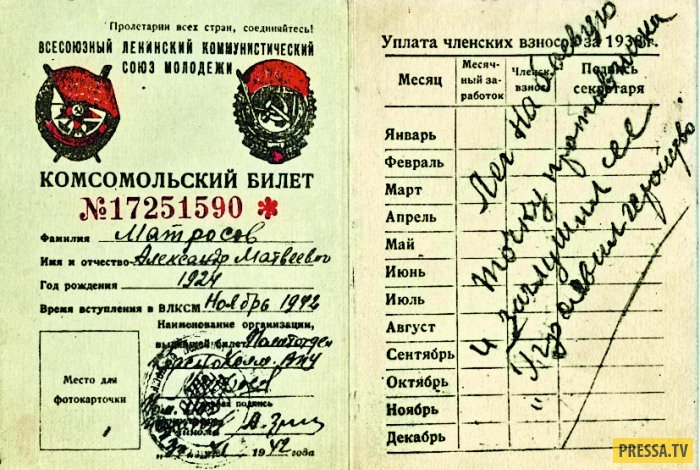 Пролетарии всех стран, соединяйтесь!
ВСЕСОЮЗНЫЙ ЛЕНИНСКИЙ КОММУНИСТИЧЕСКИЙ
СОЮЗ МОЛОДЕЖИ
КОМСОМОЛЬСКИЙ БИЛЕТ
№17251590 *
Фамилия Матросов
Имя и отчество Александр Матвеевич
Год рождения 1924
Время вступления в ВЛКСМ Ноябрь 1942
Наименование организации,
выдавшей билет Политотдел
Место для
фотокарточки
подпись
1942
Уплата членских взносов за 1938 г.
Месяц
Месяч-
ный за-
работок
Членск.
взнос
Подпись
секретаря
Январь
Февраль
Март
Апрель
Май
Июнь
Июль
Август
Сентябрь
Октябрь
Ноябрь
Декабрь
Лег на боевую
точку противника
и заглушил ее
Проявил геройство
PRESSA.TV